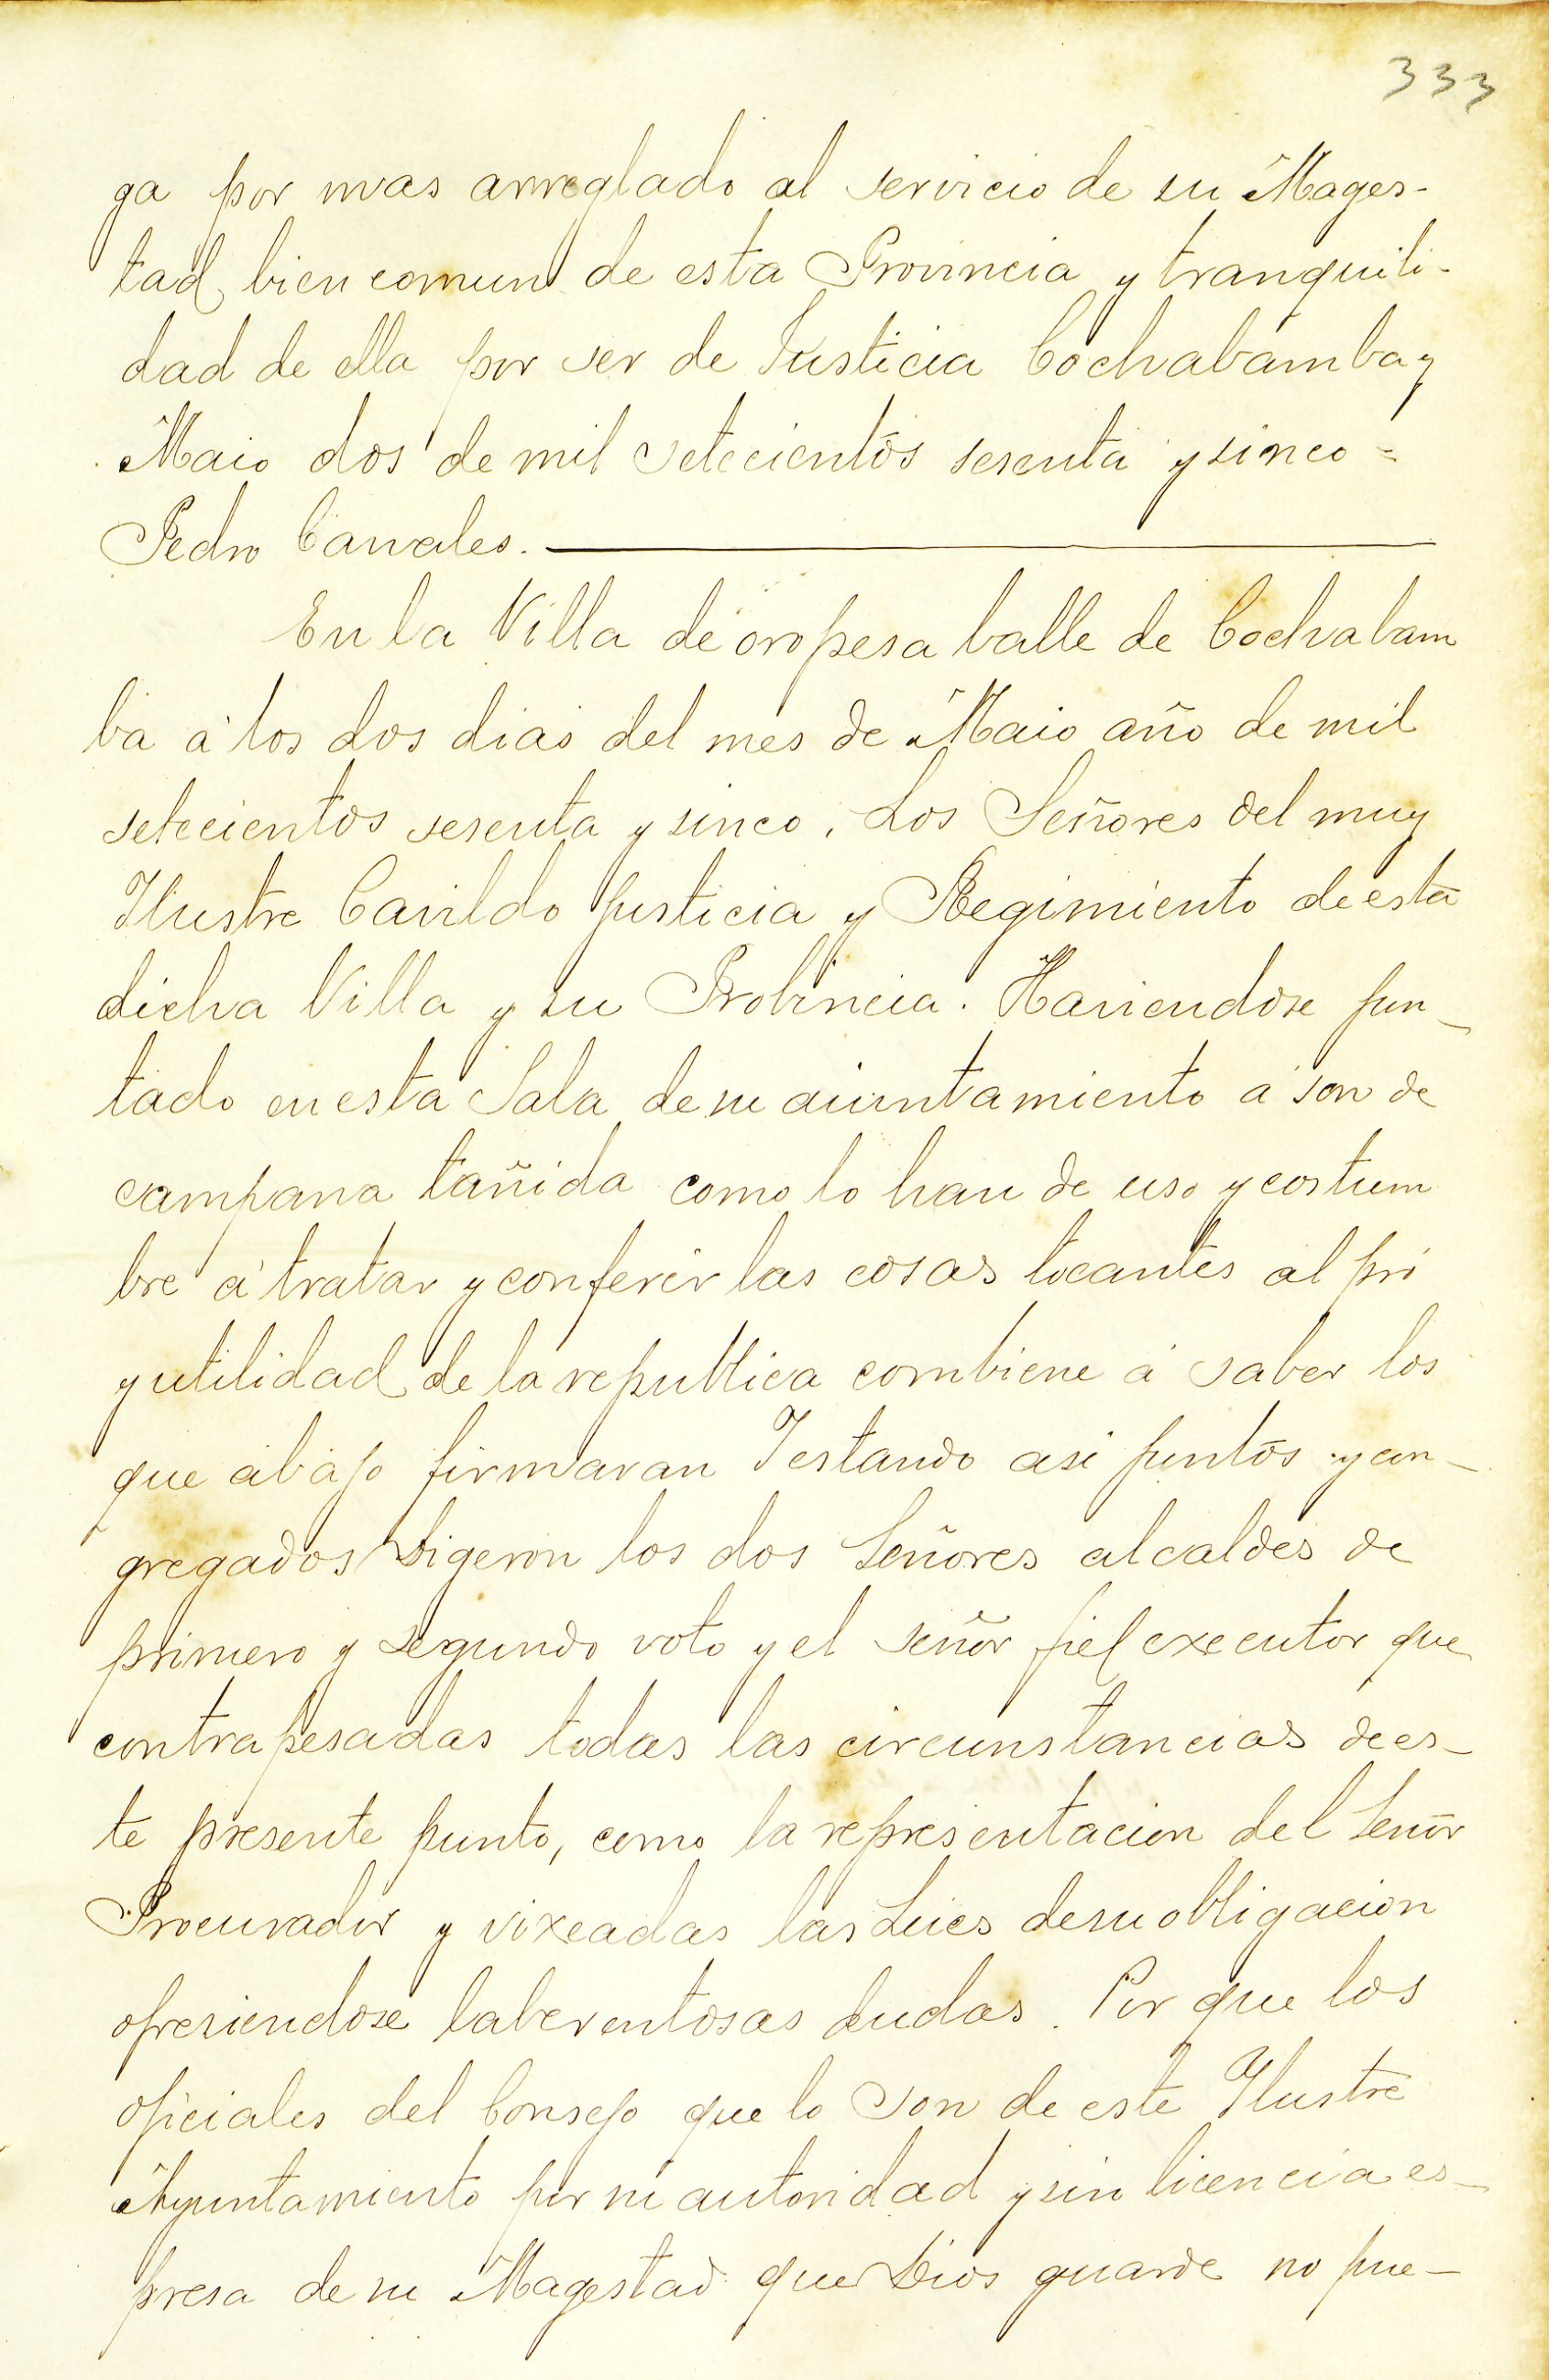 333
ga por mas arreglado al servicio de su Mages-
tad, bien comun de esta Provincia y tranquili-
dad de ella por ser de Justicia Cochabamba y
Maio dos de mil setecientos sesenta y sinco =
Pedro Canales.
En la Villa de oropesa balle de Cochabam
ba á los dos dias del mes de Maio año de mil
setecientos sesenta y sinco. Los Señores del muy
Ilustre Cavildo justicia y Regimiento de esta
dicha Villa y su Probincia. Haviendose jun-
tado en esta Sala de su aiuntamiento á son de
campana tañida como lo han de uso y costum
bre á tratar y conferir las cosas tocantes al pró
y utilidad de la republica combiene á saber los
que abajo firmaran Y estando asi juntos y con-
gregados Digeron los dos Señores alcaldes de
primero y segundo voto y el señor fiel executor que
contrapesadas todas las circunstancias de es-
te presente punto, como la representacion del Señor
Procurador y vixeadas las Leies de su obligacion
ofresiendose laberentosas dudas. Por que los
oficiales del Consejo que lo son de este Ilustre
Ayuntamiento por su autoridad y sin licencia es-
presa de su Magestad que Dios guarde no pue-